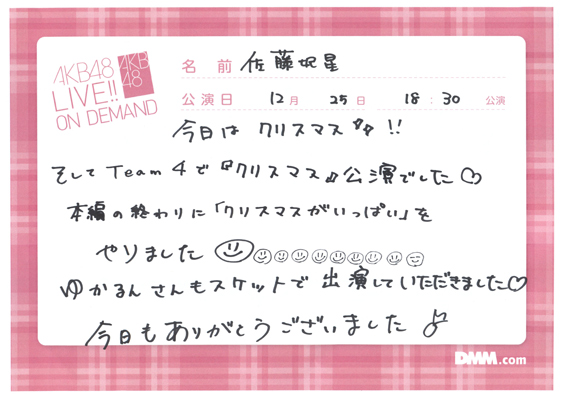 AKB48
LIVE!!
ON DEMAND
AKB
48
名 前 佐藤妃星
公演日 12月 25日 18:30 公演
今日は クリスマス !!
そして Team 4で『クリスマス』公演でした♡
本編の終わりに「クリスマスがいっぱい」を
やりました
ゆかるんさんもスケットで 出演していただきました♡
今日もありがとうございました♪
DMM.com